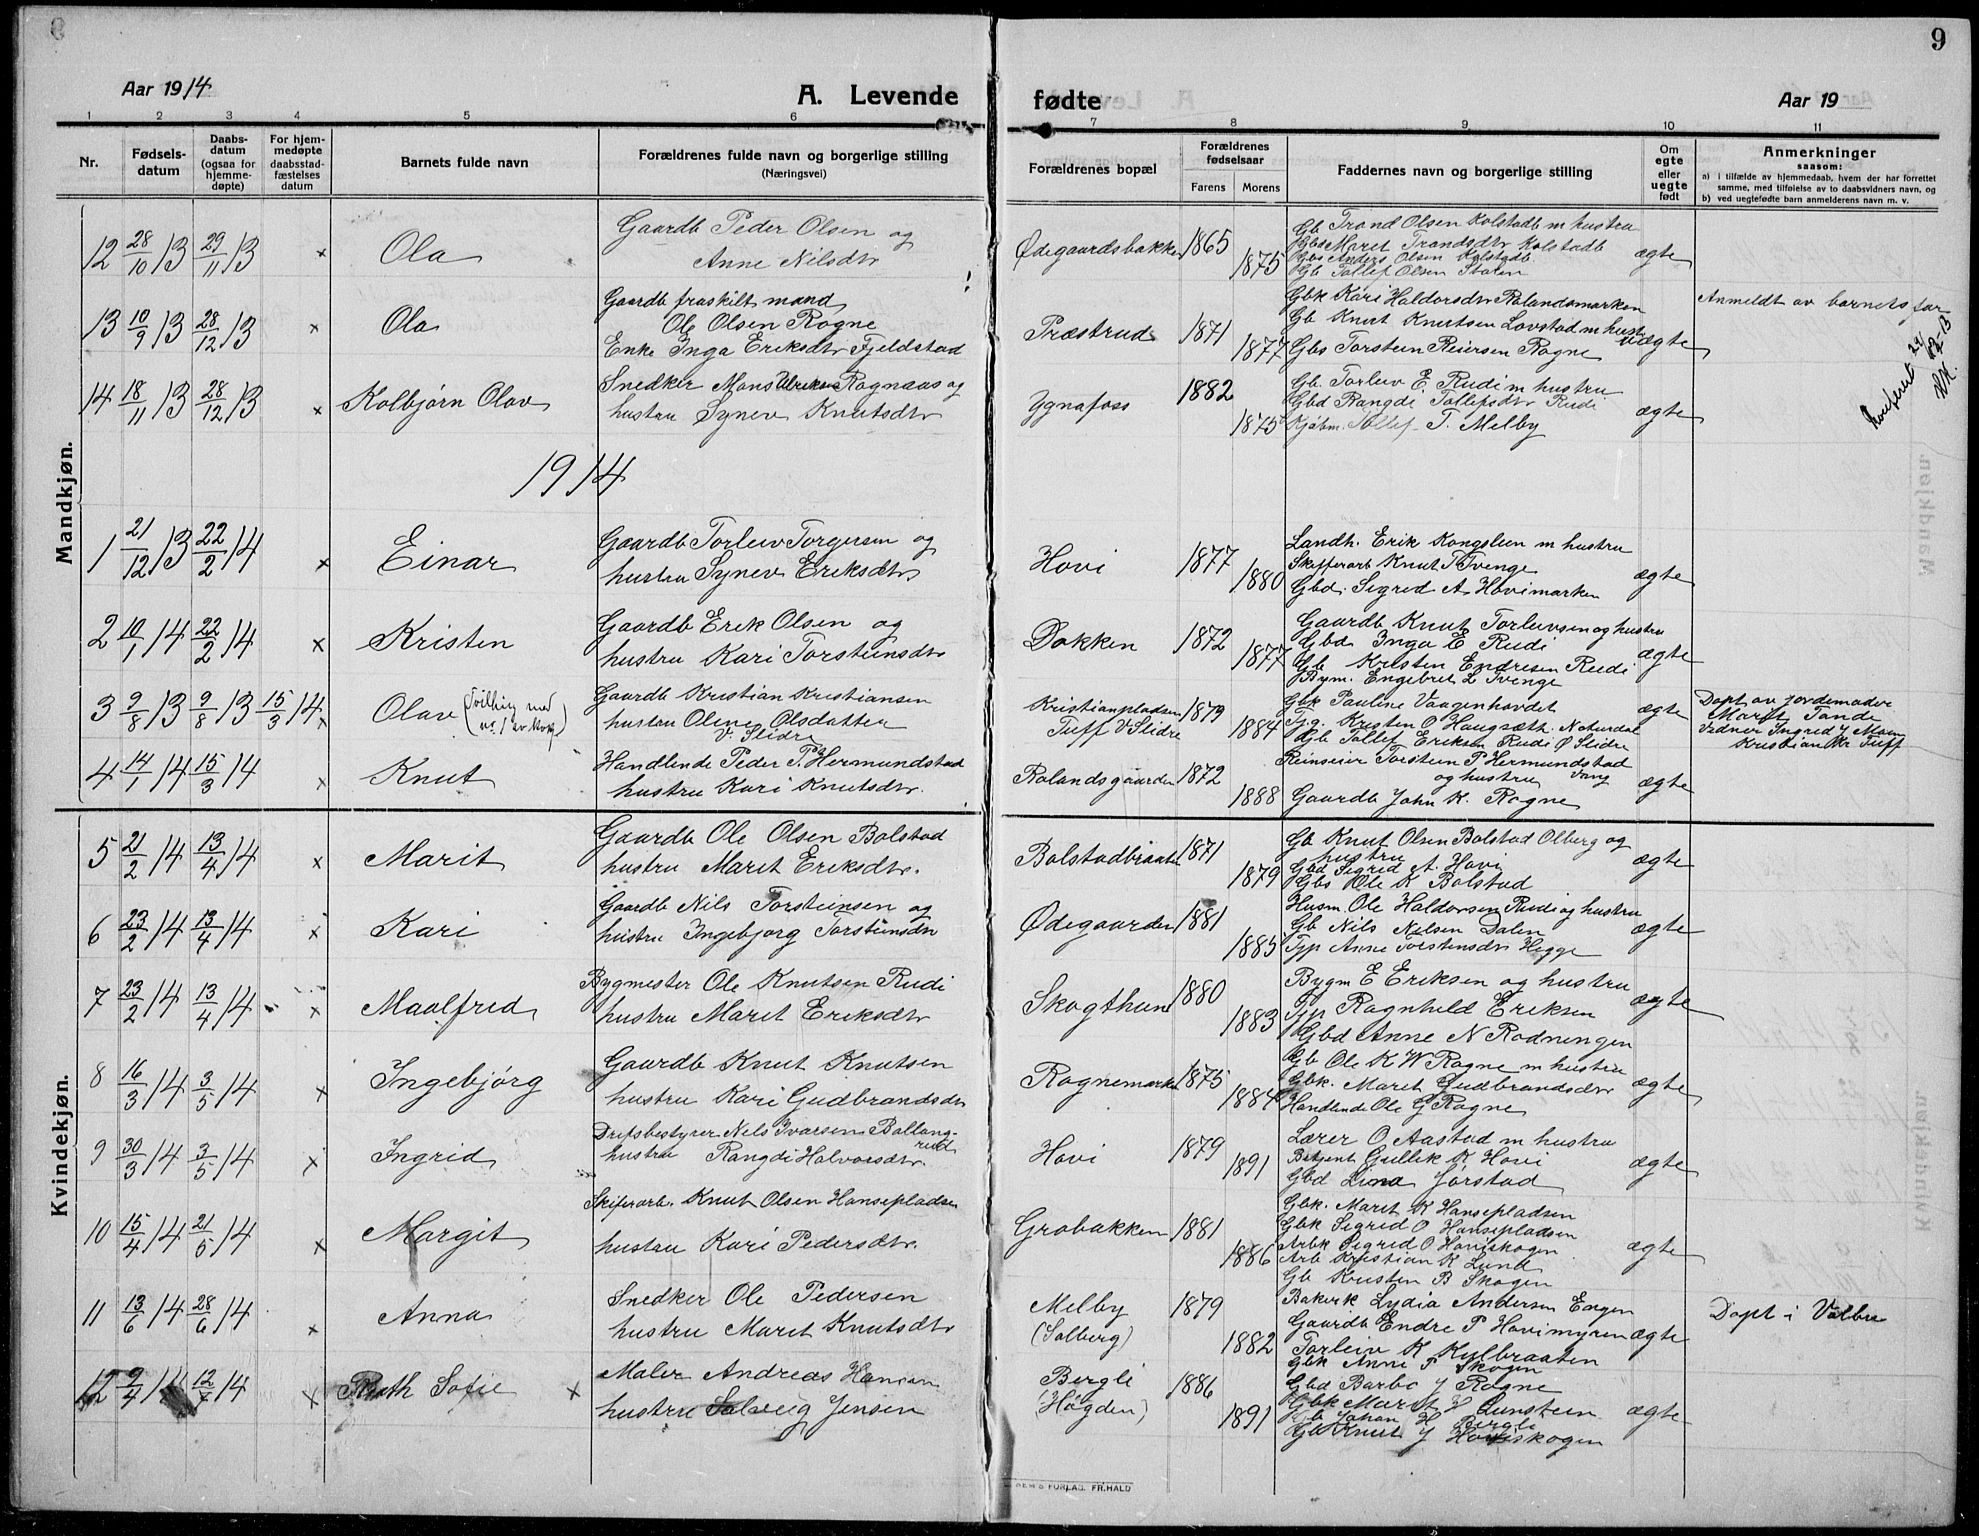 9
Aar 1914
A. Levende
fødte
Aar 19
1 2 3 4 5 6 7 8 9 10 11
Nr.
Fødsels-
datum
Daabs-
datum
(ogsaa for
hjemme-
døpte)
For hjem-
medøpte
daabsstad-
fæstelses
datum
Barnets fulde navn
Forældrenes fulde navn og borgerlige stilling
(Næringsvei)
Forældrenes bopæl
Forældrenes
fødselsaar
Farens Morens
Faddernes navn og borgerlige stilling
Om
egte
eller
uegte
født
Anmerkninger
saasom:
a) i tilfælde av hjemmedaab, hvem der har forrettet
samme, med tilføielse av to daabsvidners navn, og
b) ved uegtefødte barn anmelderens navn m. v.
Mandkjøn.
12 28/10 13 29/11 13 x Ola
Gaardb Peder Olsen og
Anne Nilsdtr
Ødegaardsbakken 1865 1875
Gb Trond Olsen Kolstadb m hustru
Gbd Maret Trondsdtr Kolstadb
Gbs Anders Olsen Kolstadb
Gb Tollef Olsen Stolen
ægte
13 10/9 13 28/12 13 x Ola
Gaardb fraskilt mand
Ole Olsen Rogne
Enke Inga Eriksdtr Fjeldstad
Præstrud 1871 1877
Gbk Kari Haldorsdtr Rolandsmarken
Gb Knut Knutsen Lovstad m hustr
Gbs Torstein Reiersen Rogne
uægte
Anmeldt av barnets far
14 18/11 13 28/12 13 x Kolbjørn Olav
Snedker Mons Ulriksen Rognaas og
hustru Synev Knutsdtr
Ygnafoss 1882 1875
Gb. Torleiv E. Rudi m hustru
Gbd Rangdi Tollefsdtr Rudi
Kjøbm. Tollef T. Melby
ægte
Konferert 29/12-13
1914
1 21/12 13 22/2 14 x Einar
Gaardb Torleiv Torgersen og
hustru Synev Eriksdtr
Hovi 1877 1880
Landh. Erik Kongslien m hustru
Skiferarb Knut T Tvenge
Gbd. Sigrid A Hovimarken
ægte
2 10/1 14 22/2 14 x Kristen
Gaardb Erik Olsen og
hustru Kari Torsteinsdtr
Dokken 1872 1877
Gaardb Knut Torleivsen og hustru
Gbd Inga E Rudi
Gb Kristen Endresen Rudi
Bygm. Engebret L Tvenge
ægte
3 9/8 13 9/8 13 15/3 14 x Olav (Tvilling med
Gaardb Kristian Kristiansen
hustru Oline Olsdatter
V. Slidre
Kristianpladsen
Tuff V Slidre 1879 1884
Gbk Pauline Vaagenhovdet
Kristen O Haugsæth. Naturdal
Gb Tollef Eriksen Rudi Ø Slidre
ægte
Døpt av jordemoder
Marit Tande
Kristian Tuff
4 14/1 14 15/3 14 x Knut
Handlende Peder P. Hermundstad
hustru Kari Knutsdtr.
Rolandsgaarden 1872 1888
Torstein P Hermundstad
og hustru Vang
Gaardb John K. Rogne
ægte
Kvindekjøn.
5 21/2 14 13/4 14 x Marit
Gaardb Ole Olsen Bolstad
hustru Maret Eriksdtr.
Bolstadbraaten 1871 1879
Gb Knut Olsen Bolstad Olberg og
hustru
Gbd Sigrid A. Hovi
Gbs Ole K Bolstad
ægte
6 23/2 14 13/4 14 x Kari
Gaardb Nils Torsteinsen og
hustru Ingebjørg Torsteinsdtr
Ødegaarden 1881 1885
Husm. Ole Haldorsen Rudi og hustru
Gb Nils Nilsen Dalen
Typ Anne Torstensdtr Hegge
ægte
7 23/2 14 13/4 14 x Maalfrid
Bygmester Ole Knutsen Rudi
hustru Maret Eriksdtr
Skogthun 1880 1883
Bygm E Eriksen og hustru
Typ Ragnhild Eriksen
Gbd Anne N Rodningen
ægte
8 16/3 14 3/5 14 x Ingebjørg
Gaardb Knut Knutsen
hustru Kari Gudbrandsdtr
Rognemarken 1875 1884
Gb Ole K W Rogne m hustru
Gbk. Maret Gudbrandsdtr
Handlende Ole G Rogne
ægte
9 30/3 14 3/5 14 x Ingrid
Driftsbestyrer Nils Ivarsen Ballang-
rud
hustru Rangdi Halvorsdtr.
Hovi 1879 1891
Lærer O Aastad m hustru
Betjent Gullik K Hovi
Gbd Lina Jørstad
ægte
10 15/4 14 21/5 14 x Margit
Skiferarb. Knut Olsen Hansepladsen
hustru Kari Pedersdtr.
Grobakken 1881 1886
Gbk. Maret K Hansepladsen
Gbk Sigrid O Hansepladsen
Arbk Sigrid O Hoviskogen
Arb Kristian K Lund
Gb Kristen B Skogen
ægte
11 13/6 14 28/6 14 x Anna
Snedker Ole Pedersen
hustru Maret Knutsdtr
Melby
(Solberg) 1879 1882
Bakerk Lydia Andersen Engen
Gaardb Endre P Hovimyren
Torleiv K Kulbraaten
Gbk Anne P Skogen
ægte
Døpt i Volbu
12 2/4 14 12/7 14 x Ruth Sofie x
Maler Andreas Hansen
hustru Solveig Jensen
Bergli
(Høgden) 1886 1891
Gbd Barbo J Rogne
Gbk Marit H Gunstein
Gb Johan H Bergli
Gb Knut J Hoviskogen
ægte
FORLAG. FR. HALD